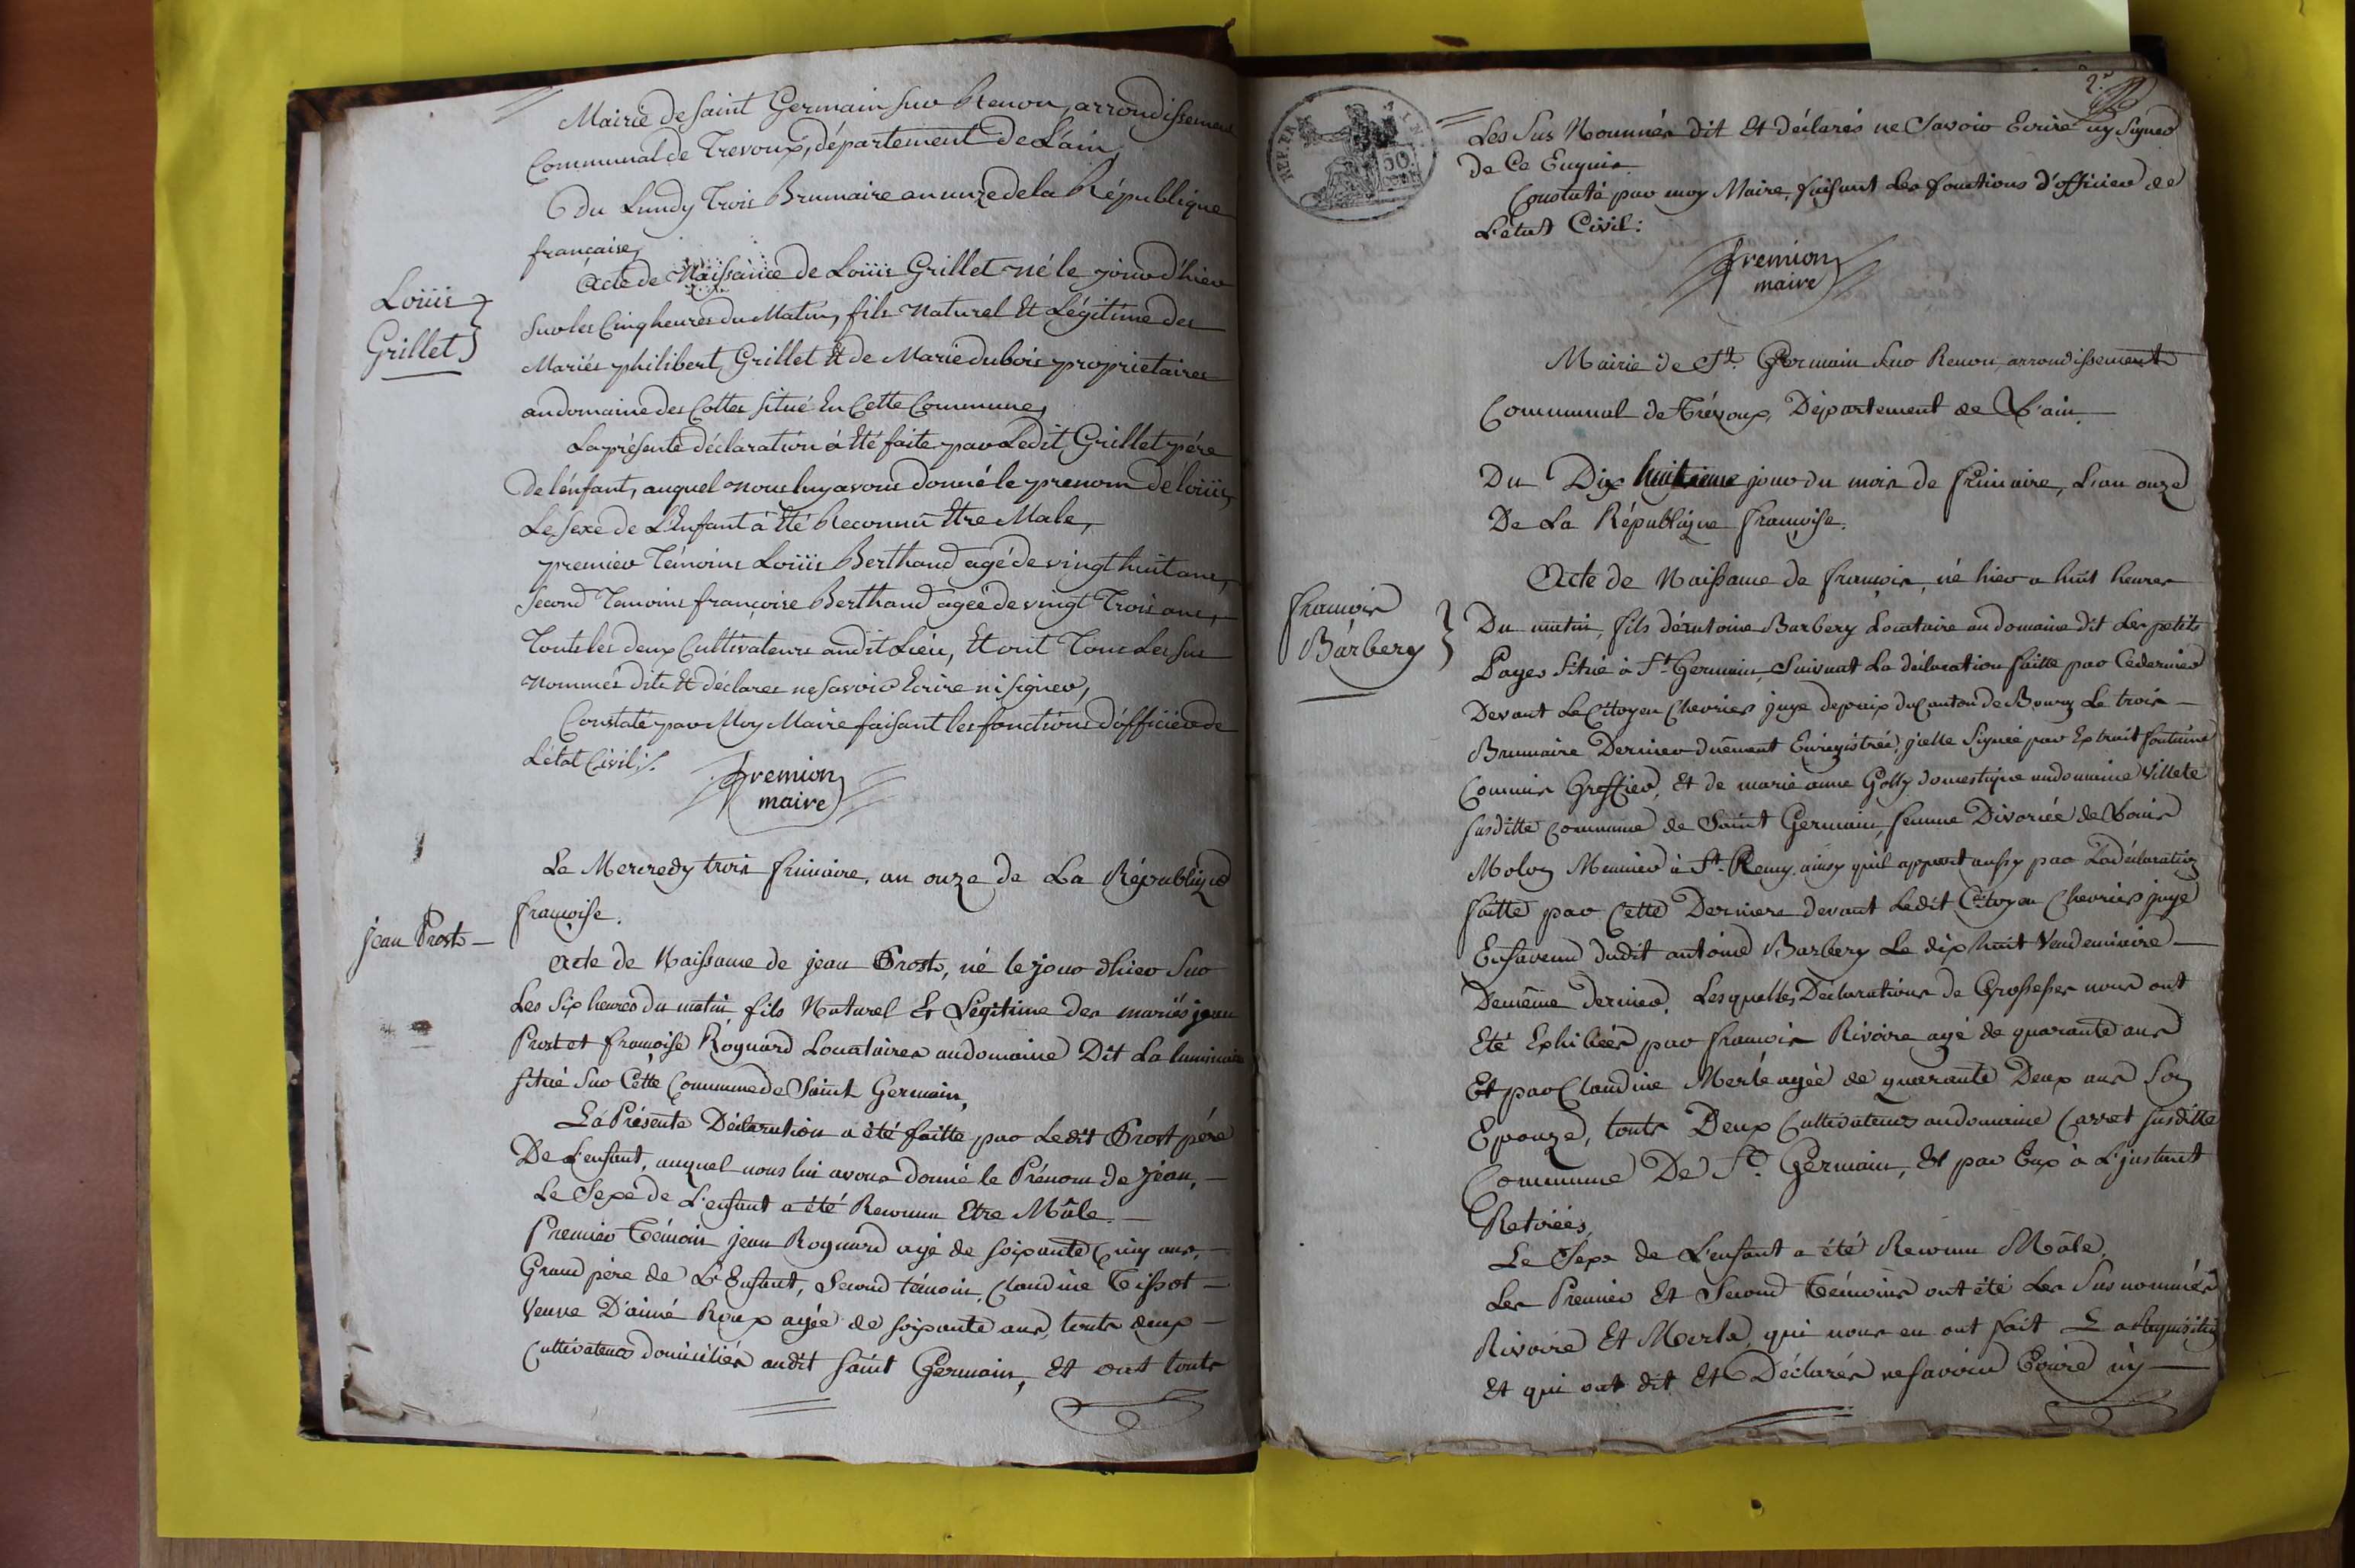 Mairie de Saint Germain sur Renon, arrondissement
Communal de Trevoux, département de L'ain,
du Lundy Trois Brumaire an onze de la République
française,
Acte de Naissance de Loüis Grillet né le jour d'hier
Loüis
Grillet
sur les Cinq heures du Matin, fils Naturel Et Légitime des
Mariés philibert Grillet Et de Marie dubois proprietaires
au domaine des Cottes situé En Cette Commune,
La présente déclaration à Eté faite par Ledit Grillet pére
de l'énfant, auquel nous luy avons donné le prenom de loüis,
Le sexe de L'Enfant à Eté Reconnû Etre Male,
premier Témoins Loüis Berthaud agé de vingt huit ans,
second Temoins françoise Berthaud agée de vingt Trois ans,
Touts les deux Cultivateurs au dit Lieu, Et ont Tous Les sus
nommés dits Et déclarés ne savoir Ecrire ni signer,
Constaté par Moy Maire faisant les fonctions d'officier de
L'état Civil ./.
fremion
maire
Le Mercredy trois frimaire, an onze de La République
françoise.
jean Prost
Acte de Naissance de jean Prost, né le jour d'hier sur
Les six heures du matin fils Naturel Et Légitime des mariés jean
Prost et françoise Rognard Locataires au domaine Dit La
situé sur Cette Commune de Saint Germain,
La Présente Déclaration a été faitte par Ledit Prost pére
De L'enfant, auquel nous lui avons donné le Prénom de jean,
Le Sexe de L'enfant a été Reconnu Etre Mâle.
Premier Témoin jean Rognard agé de soixante Cinq ans,
Grand père de L'Enfant, Second témoin, Claudine Tissot
Veuve D'aimé Roux agée de soixante ans, touts deux
Cultivateurs domiciliés audit Saint Germain, Et ont touts
2.e
REP. FRA
50
Les Sus Nommés dit Et déclarés ne Savoir Ecrire ny Signer
de Ce Enquis.
Constaté par moy Maire, faisant les fonctions d'officier de
L'état Civil:
fremion
maire
Mairie de St. Germain Sur Renon, arrondissement
Communal de Trévoux, Département de L'ain.
Du Dix huitieme jour du mois de frimaire, L'an onze
De La République françoise.
Acte de Naissance de françois, né hier a huit heures
françois
Barbery
Du matin, fils d'éantoine Barbery Locataire au domaine dit Les petits
Pages Situé à St. Germain, Suivant La déclaration faitte par Cedernier
Devant Le Citoyen Chevrier juge depaix du Canton de Bourg Le trois
Brumaire Dernier duement Enregistrée, jcelle Signée par Extrait fontaine
Commis Greffier, Et de marie anne Golly domestique au domaine Villete
susditte commune de Saint Germain, femme Divorcée de Louis
Molon Meunier à St. Remy ainsy qu'il appert aussy par Ladéclaration
faitte par Cette Derniere devant Ledit Citoyen Chevrier juge
Enfaveur dudit antoine Barbery Le dix huit Vendemiaire
Demême dernier, Lesquelles Déclarations de Grossesses nous ont
Eté Exhibées par françois Rivoire agé de quarante ans
Et par Claudine Merle agée de quarante Deux ans Son
Epouze, touts Deux Cultivateurs au domaine Carret susditte
Commune De St. Germain, Et par Eux à L'jnstant
Retirées,
Le Sexe de L'enfant a été Reconnu Mâle,
Les Premier Et Second Témoins ont été Les Sus nommés
Rivoire Et Merle, qui nous en ont fait La Requisition
Et qui ont dit Et Déclarés ne savoir Ecrire ny